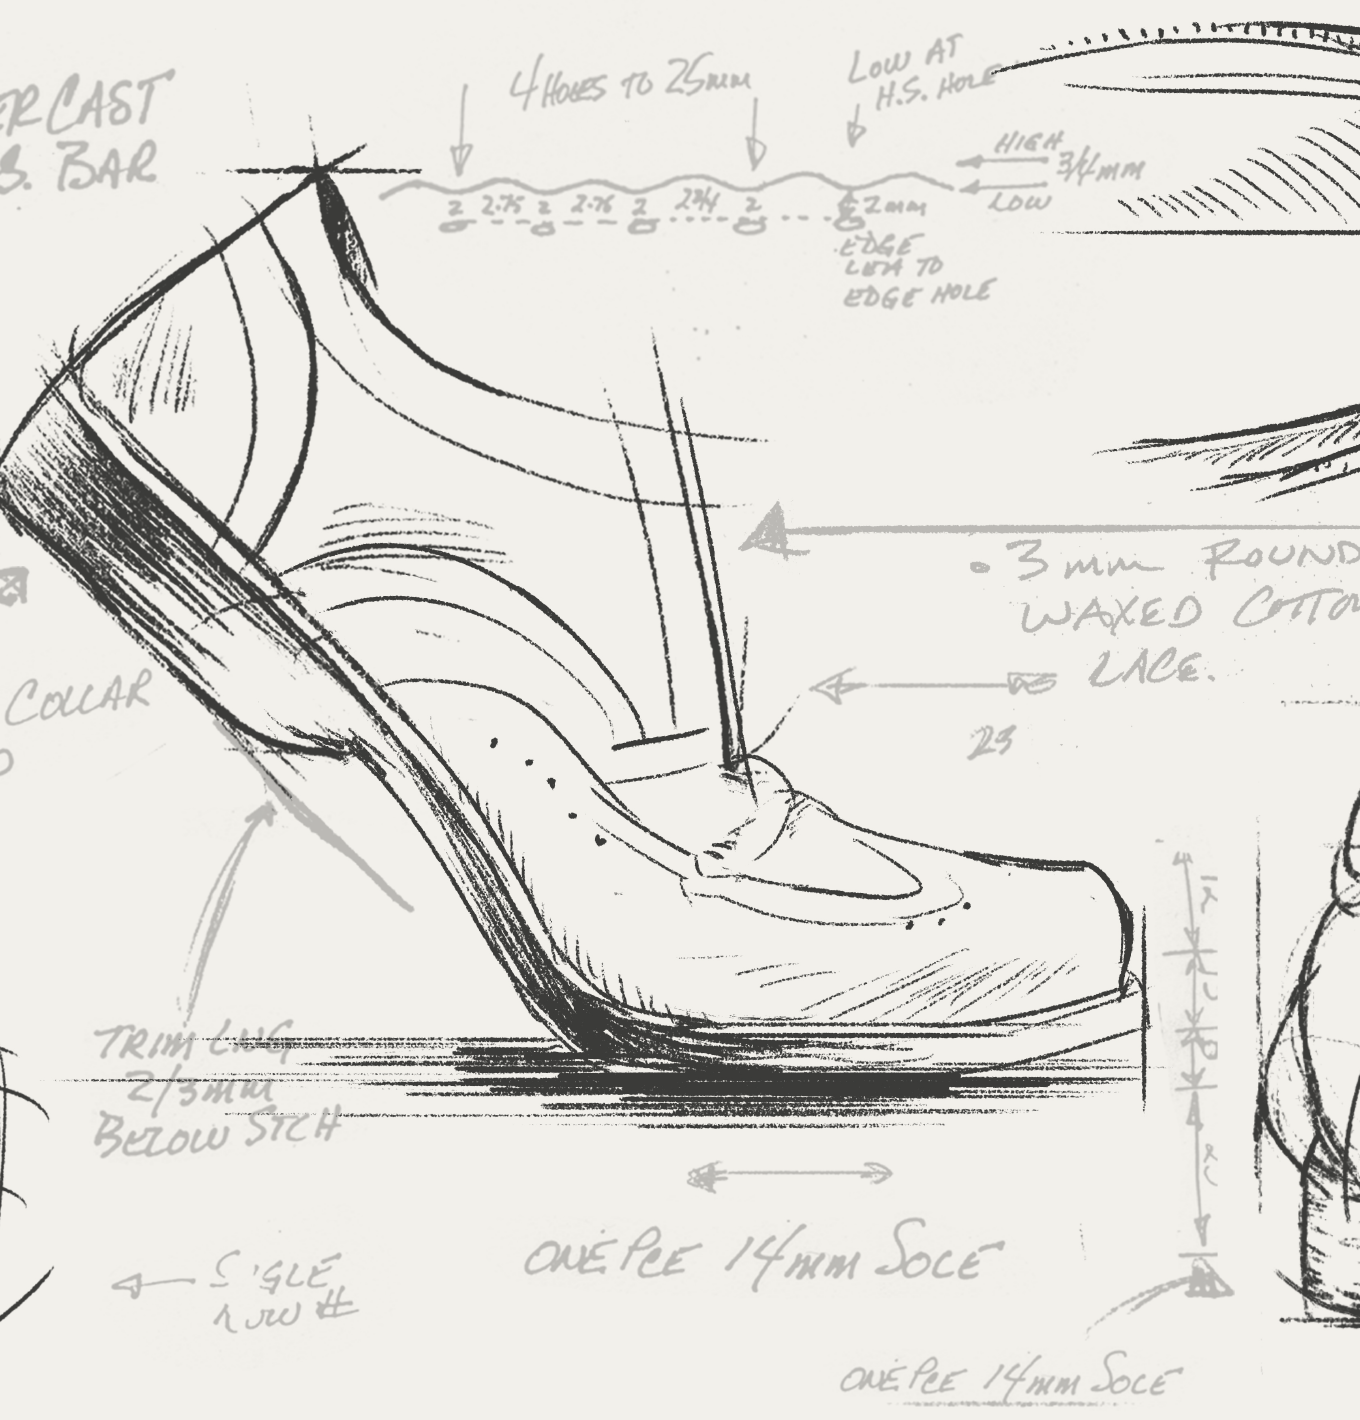 ERCAST
S. BAR
4 HOLES TO 25mm
LOW AT
H.S. HOLE
HIGH
3/4mm
LOW
2 2.75 2 2.75 2 2 3/4 2 2mm
EDGE
TO
EDGE HOLE
3mm ROUND
WAXED COTTO
LACE.
23
COLLAR
TRIM LNG
2/3mm
BELOW STCH
ONE PCE 14mm SOLE
ROW #
ONE PCE 14mm SOLE